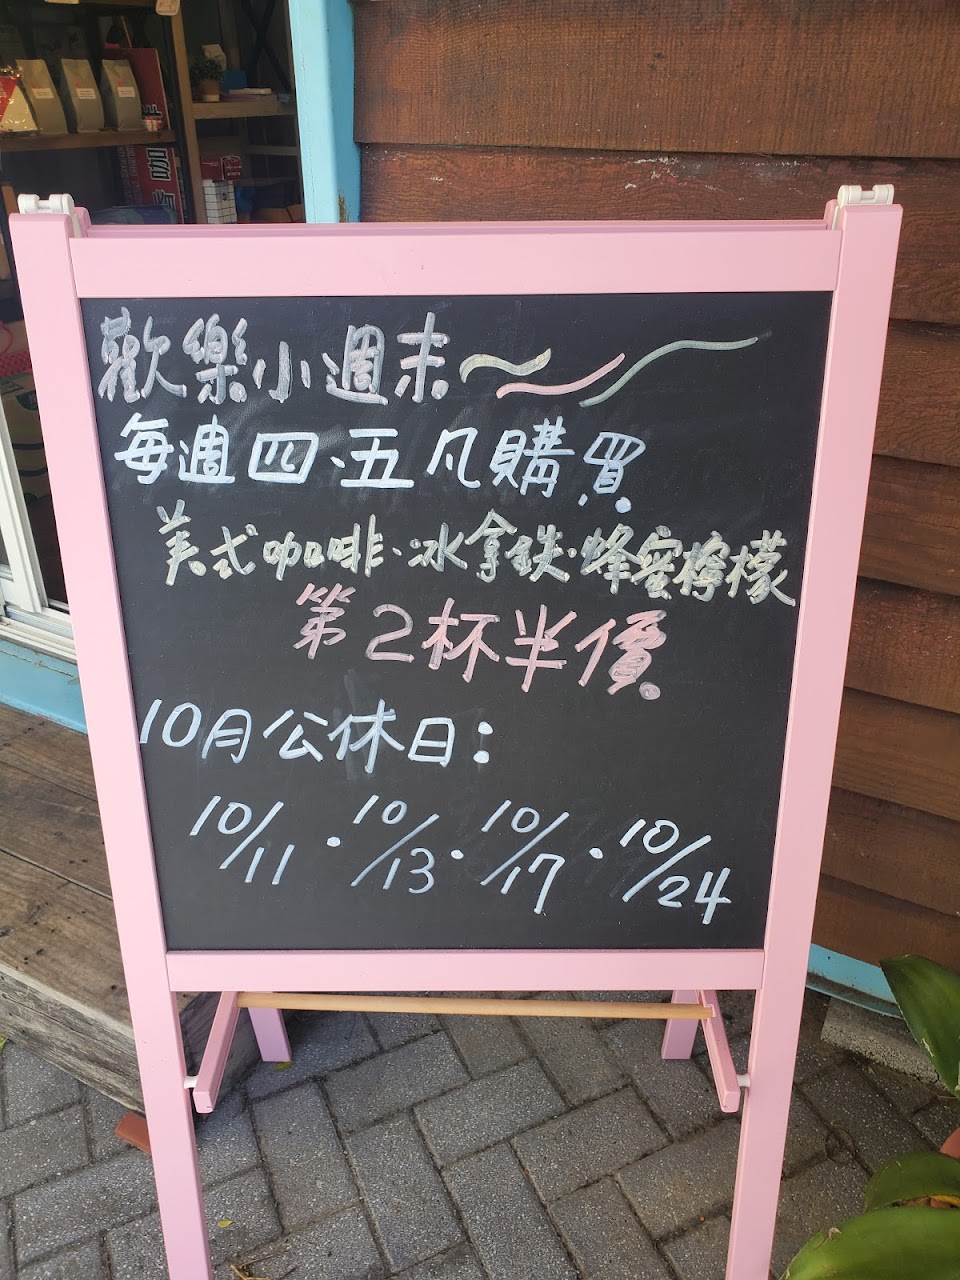 咖
歡樂小週末~
每週四.五凡購買
美式咖啡.冰拿鐵.蜂蜜檸檬
第2杯半價
10月公休日:
10/11.10/13.10/17.10/24